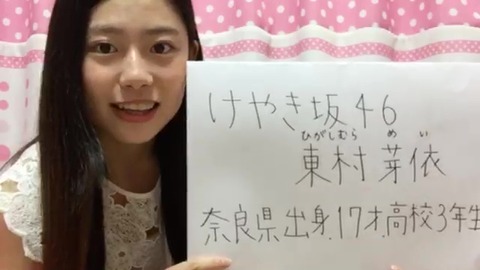 けやき坂46
ひがしむら めい
東村 芽依
奈良県出身.17才.高校3年生